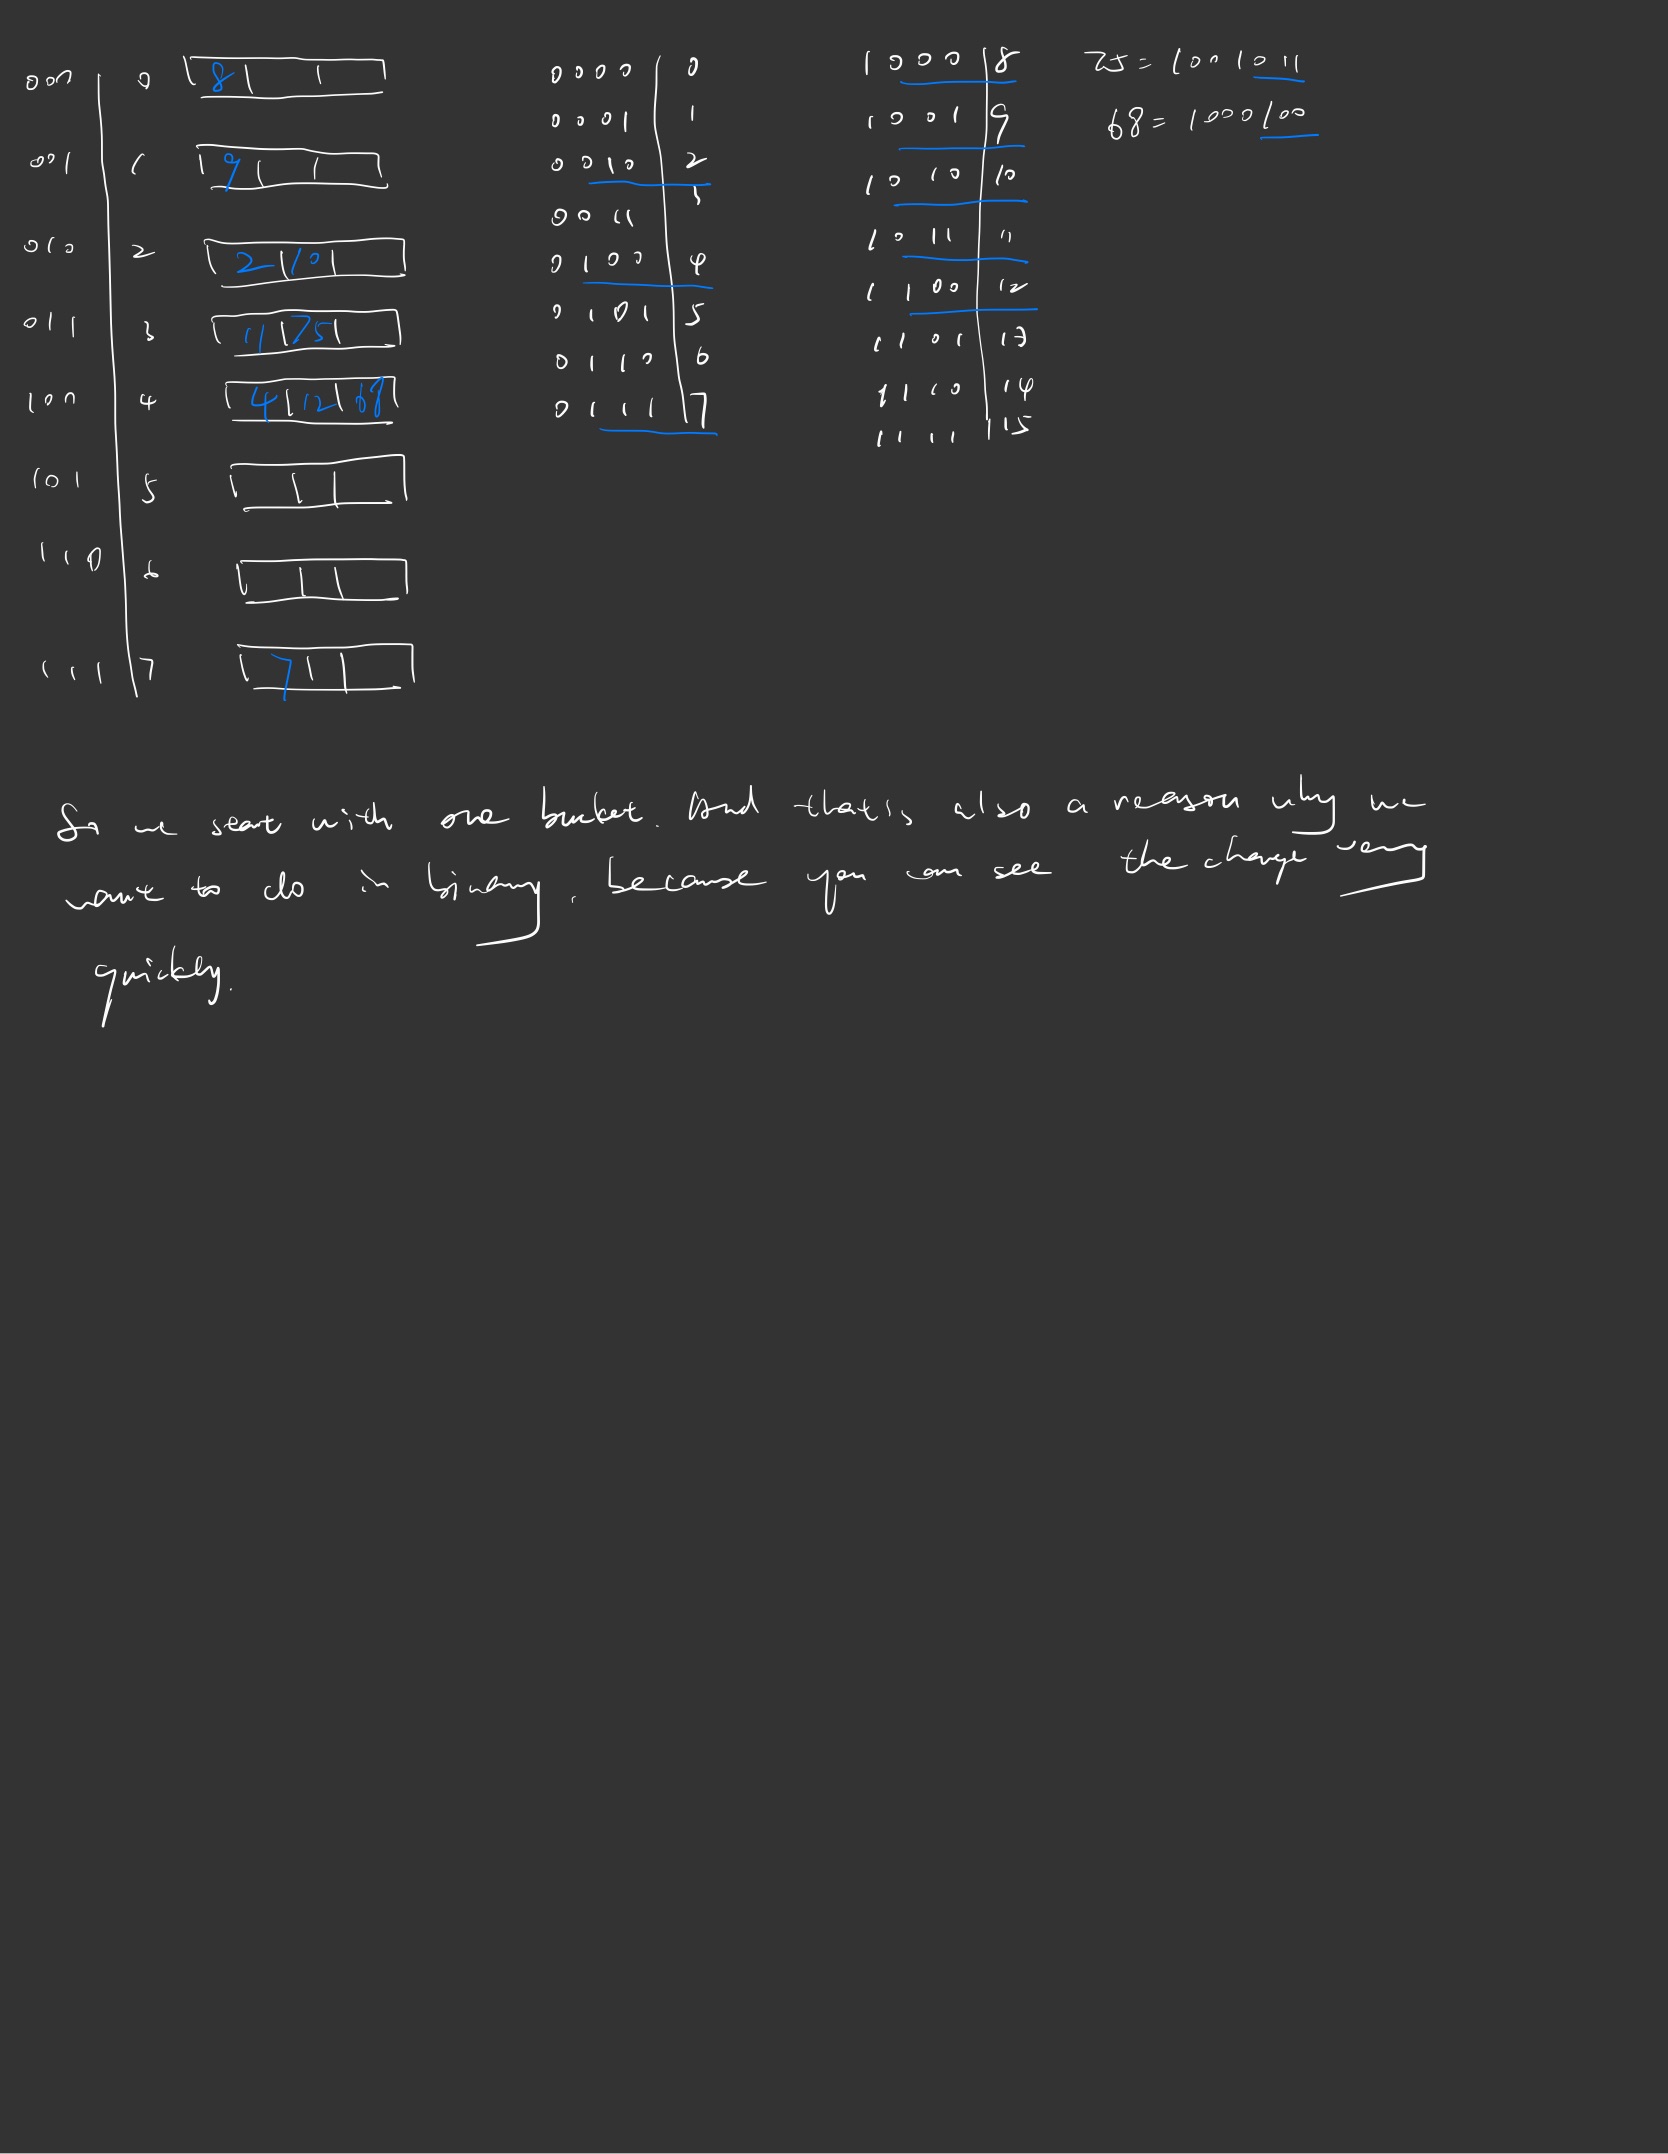 000 0 8
001 1 9
010 2 2 10
011 3 11 75
100 4 4 12 68
101 5
110 6
111 7 7
0000 0
0001 1
0010 2
0011 3
0100 4
0101 5
0110 6
0111 7
1000 8
1001 9
1010 10
1011 11
1100 12
1101 13
1110 14
1111 15
75 = 1001011
68 = 1000100
So we start with one bucket. And that's also a reason why we
want to do in binary, because you can see the change very
quickly.